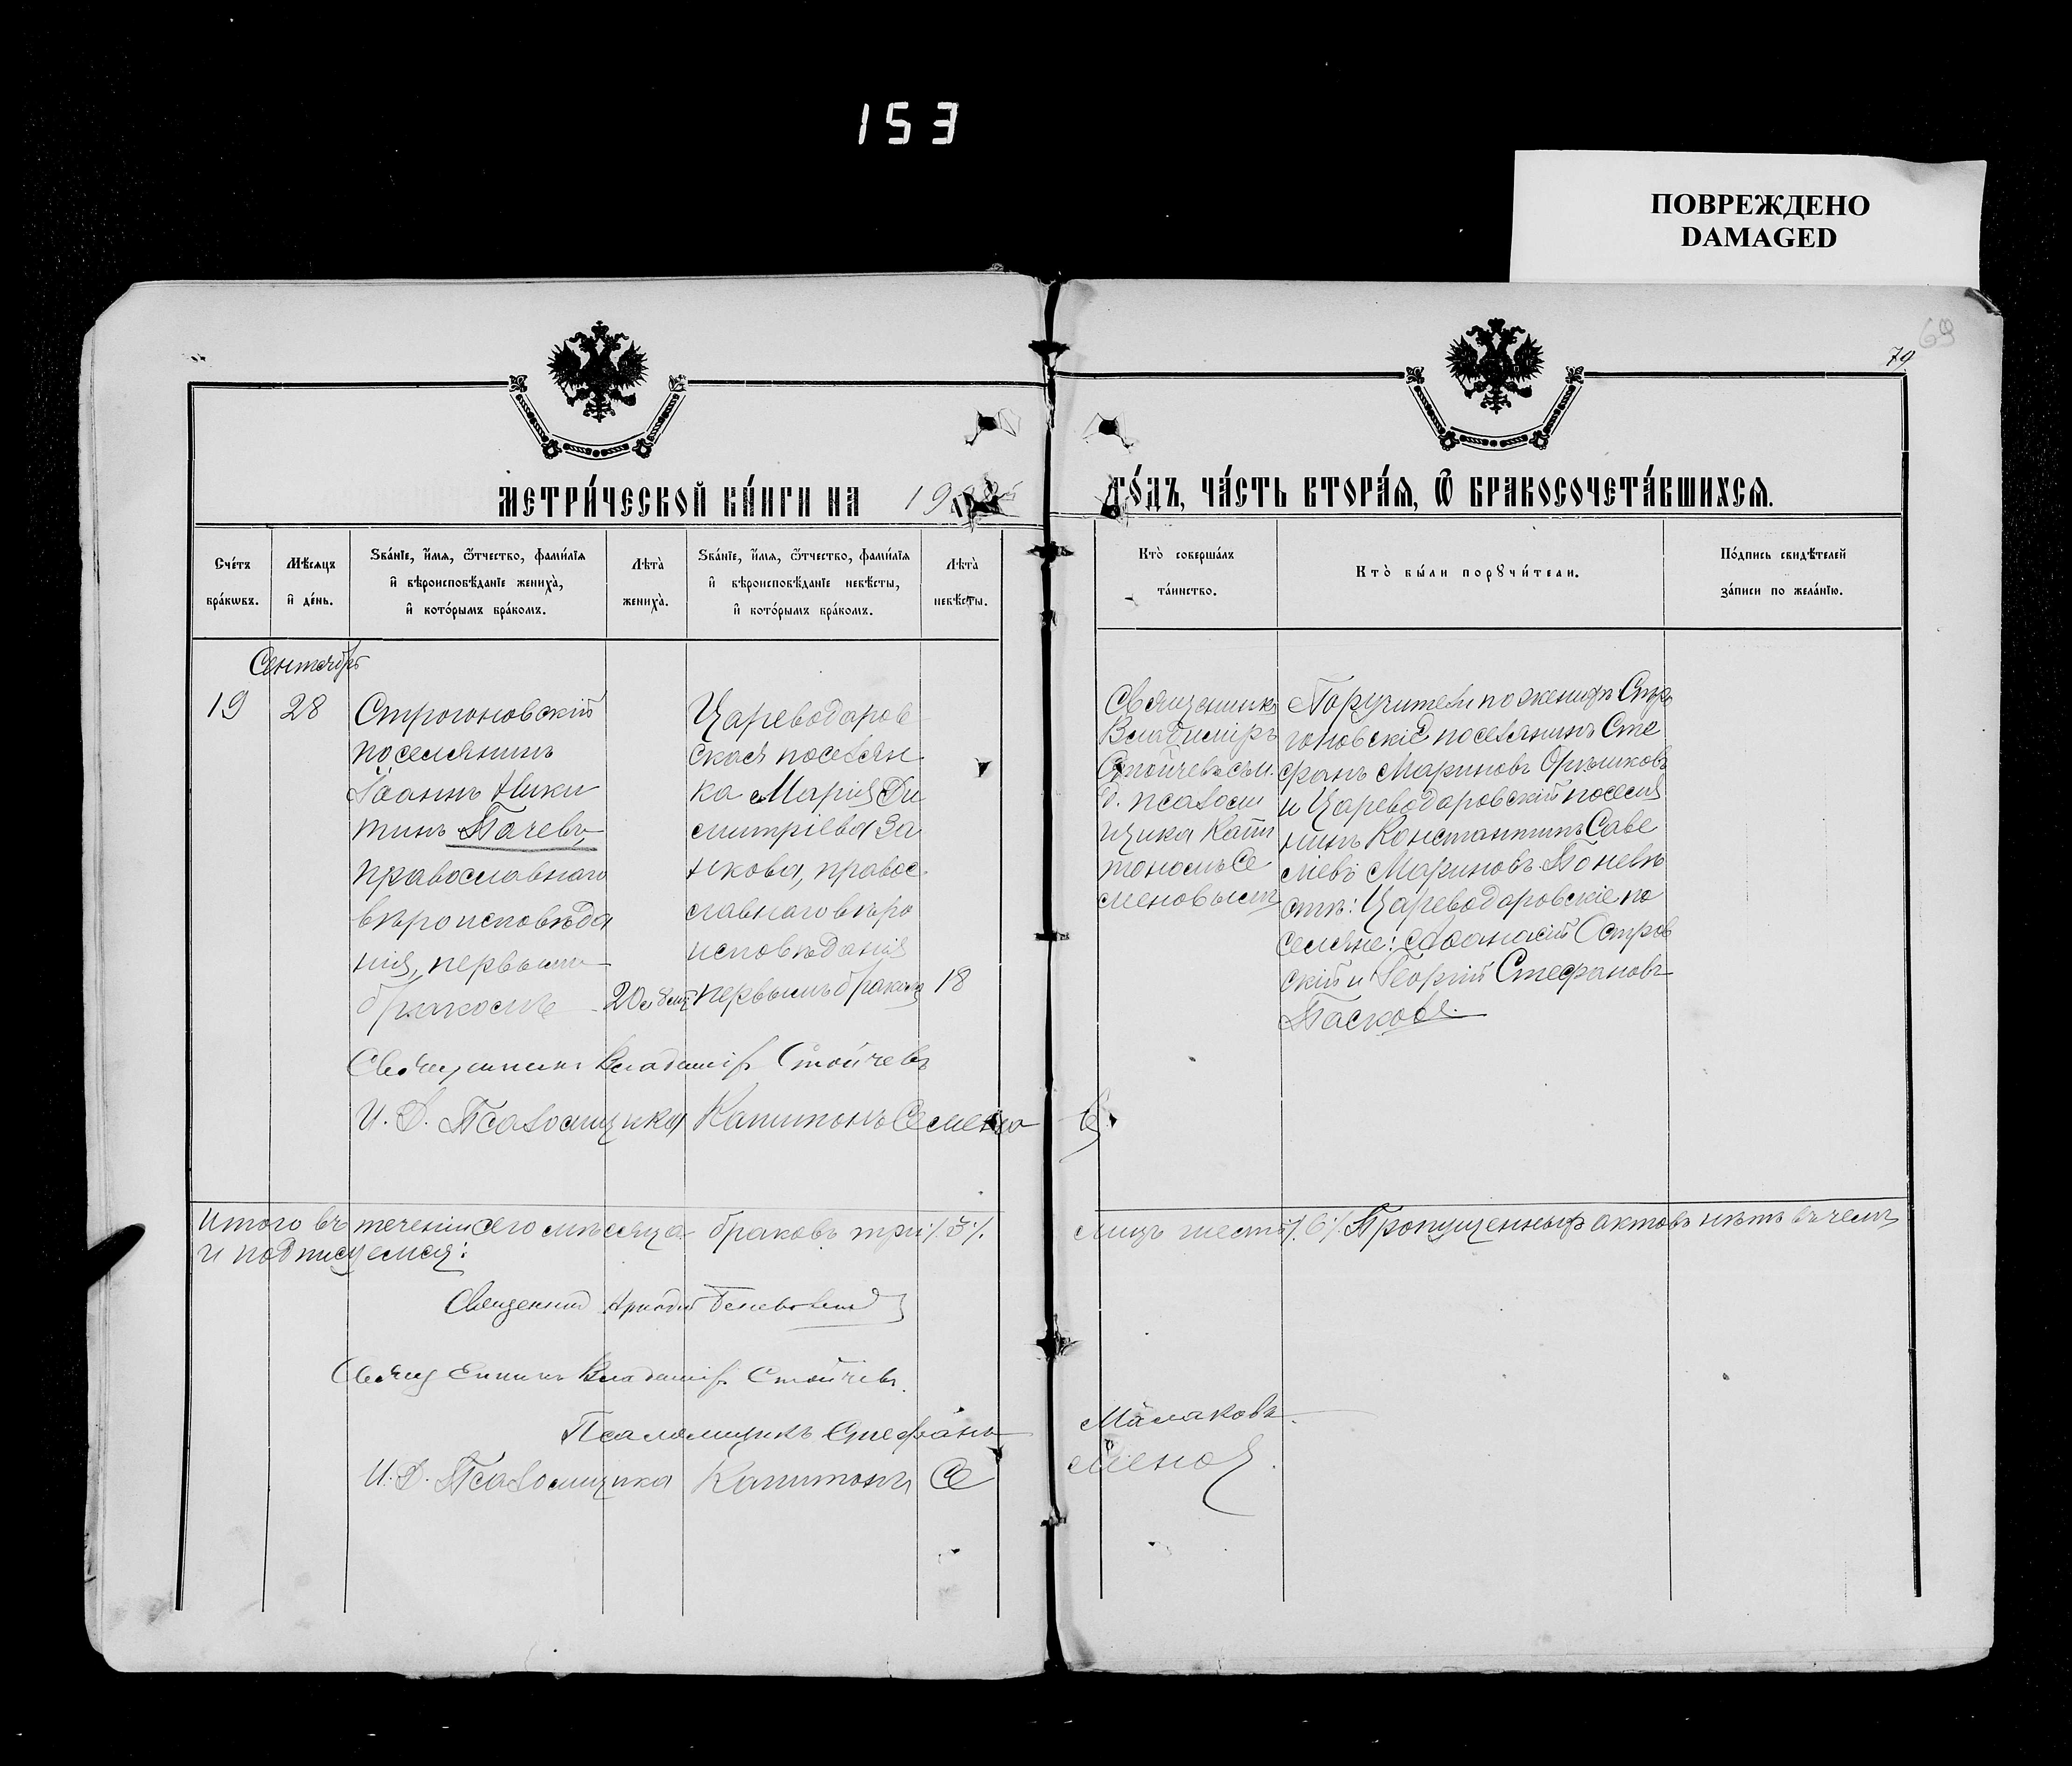 153
ПОВРЕЖДЕНО
DAMAGED
69
79
МЕТРИ́ЧЕСКОЙ КНИ́ГИ НА 19
ГО́ДЪ, ЧА́СТЬ ВТОРА́Я, Ѿ БРАКОСОЧЕТА́ВШИХСЯ.
Сче́тъ бра́кѡвъ.
Мѣ́сяцъ и҆ де́нь.
Ѕва́нїе, и҆́мя, ѻ҆́тчество, фами́лїя и҆ вѣроисповѣ́данїе жениха̀, и҆ кото́рымъ бра́комъ.
Лѣта̀ жениха̀.
Ѕва́нїе, и҆́мя, ѻ҆́тчество, фами́лїя и҆ вѣроисповѣ́данїе невѣ́сты, и҆ кото́рымъ бра́комъ.
Лѣта̀ невѣ́сты.
Кто̀ соверша́лъ та́инство.
Кто̀ бы́ли порꙋчи́тели.
По́дпись свидѣ́телей за́писи по жела́нїю.
Сентябрь
19
28
Строгоновскій
поселянинъ
Іоаннъ Ники
тинъ Пачевъ,
православнаго
вѣроисповѣда
нія, первымъ
бракомъ
20
Цареводаров
ская поселян
ка Марія Ди
митріева За
нкова, правос
лавнаго вѣро
исповѣданія
первымъ бракомъ
18
Священникъ
Владиміръ
Стойчевъ съ и.
д. псаломщ
щика Капи
тономъ Се
меновымъ
Поручители по женихѣ Стро
гоновскіе поселянинъ Сте
фанъ Мариновъ Орѣшковъ
и Цареводаровскій поселя
нинъ Константинъ Саве
ліевъ Мариновъ По невѣ
стѣ: Цареводаровскіе по
селяне: Аѳанасій Остров
скій и Георгій Стефановъ
Пасковъ.
Священникъ Владиміръ Стойчевъ
И. Д. Псаломщика Капитонъ Семено
в
Итого въ теченіи сего мѣсяца браковъ три ./.3./. лицъ шесть ./.6./. Пропущенныхъ актовъ нѣтъ въ чемъ
и подписуемся:
Священникъ Аркадій
Священникъ Владиміръ Стойчевъ.
Псаломщикъ Стефанъ Малаковъ.
И. Д. Псаломщика Капитонъ Се менов.